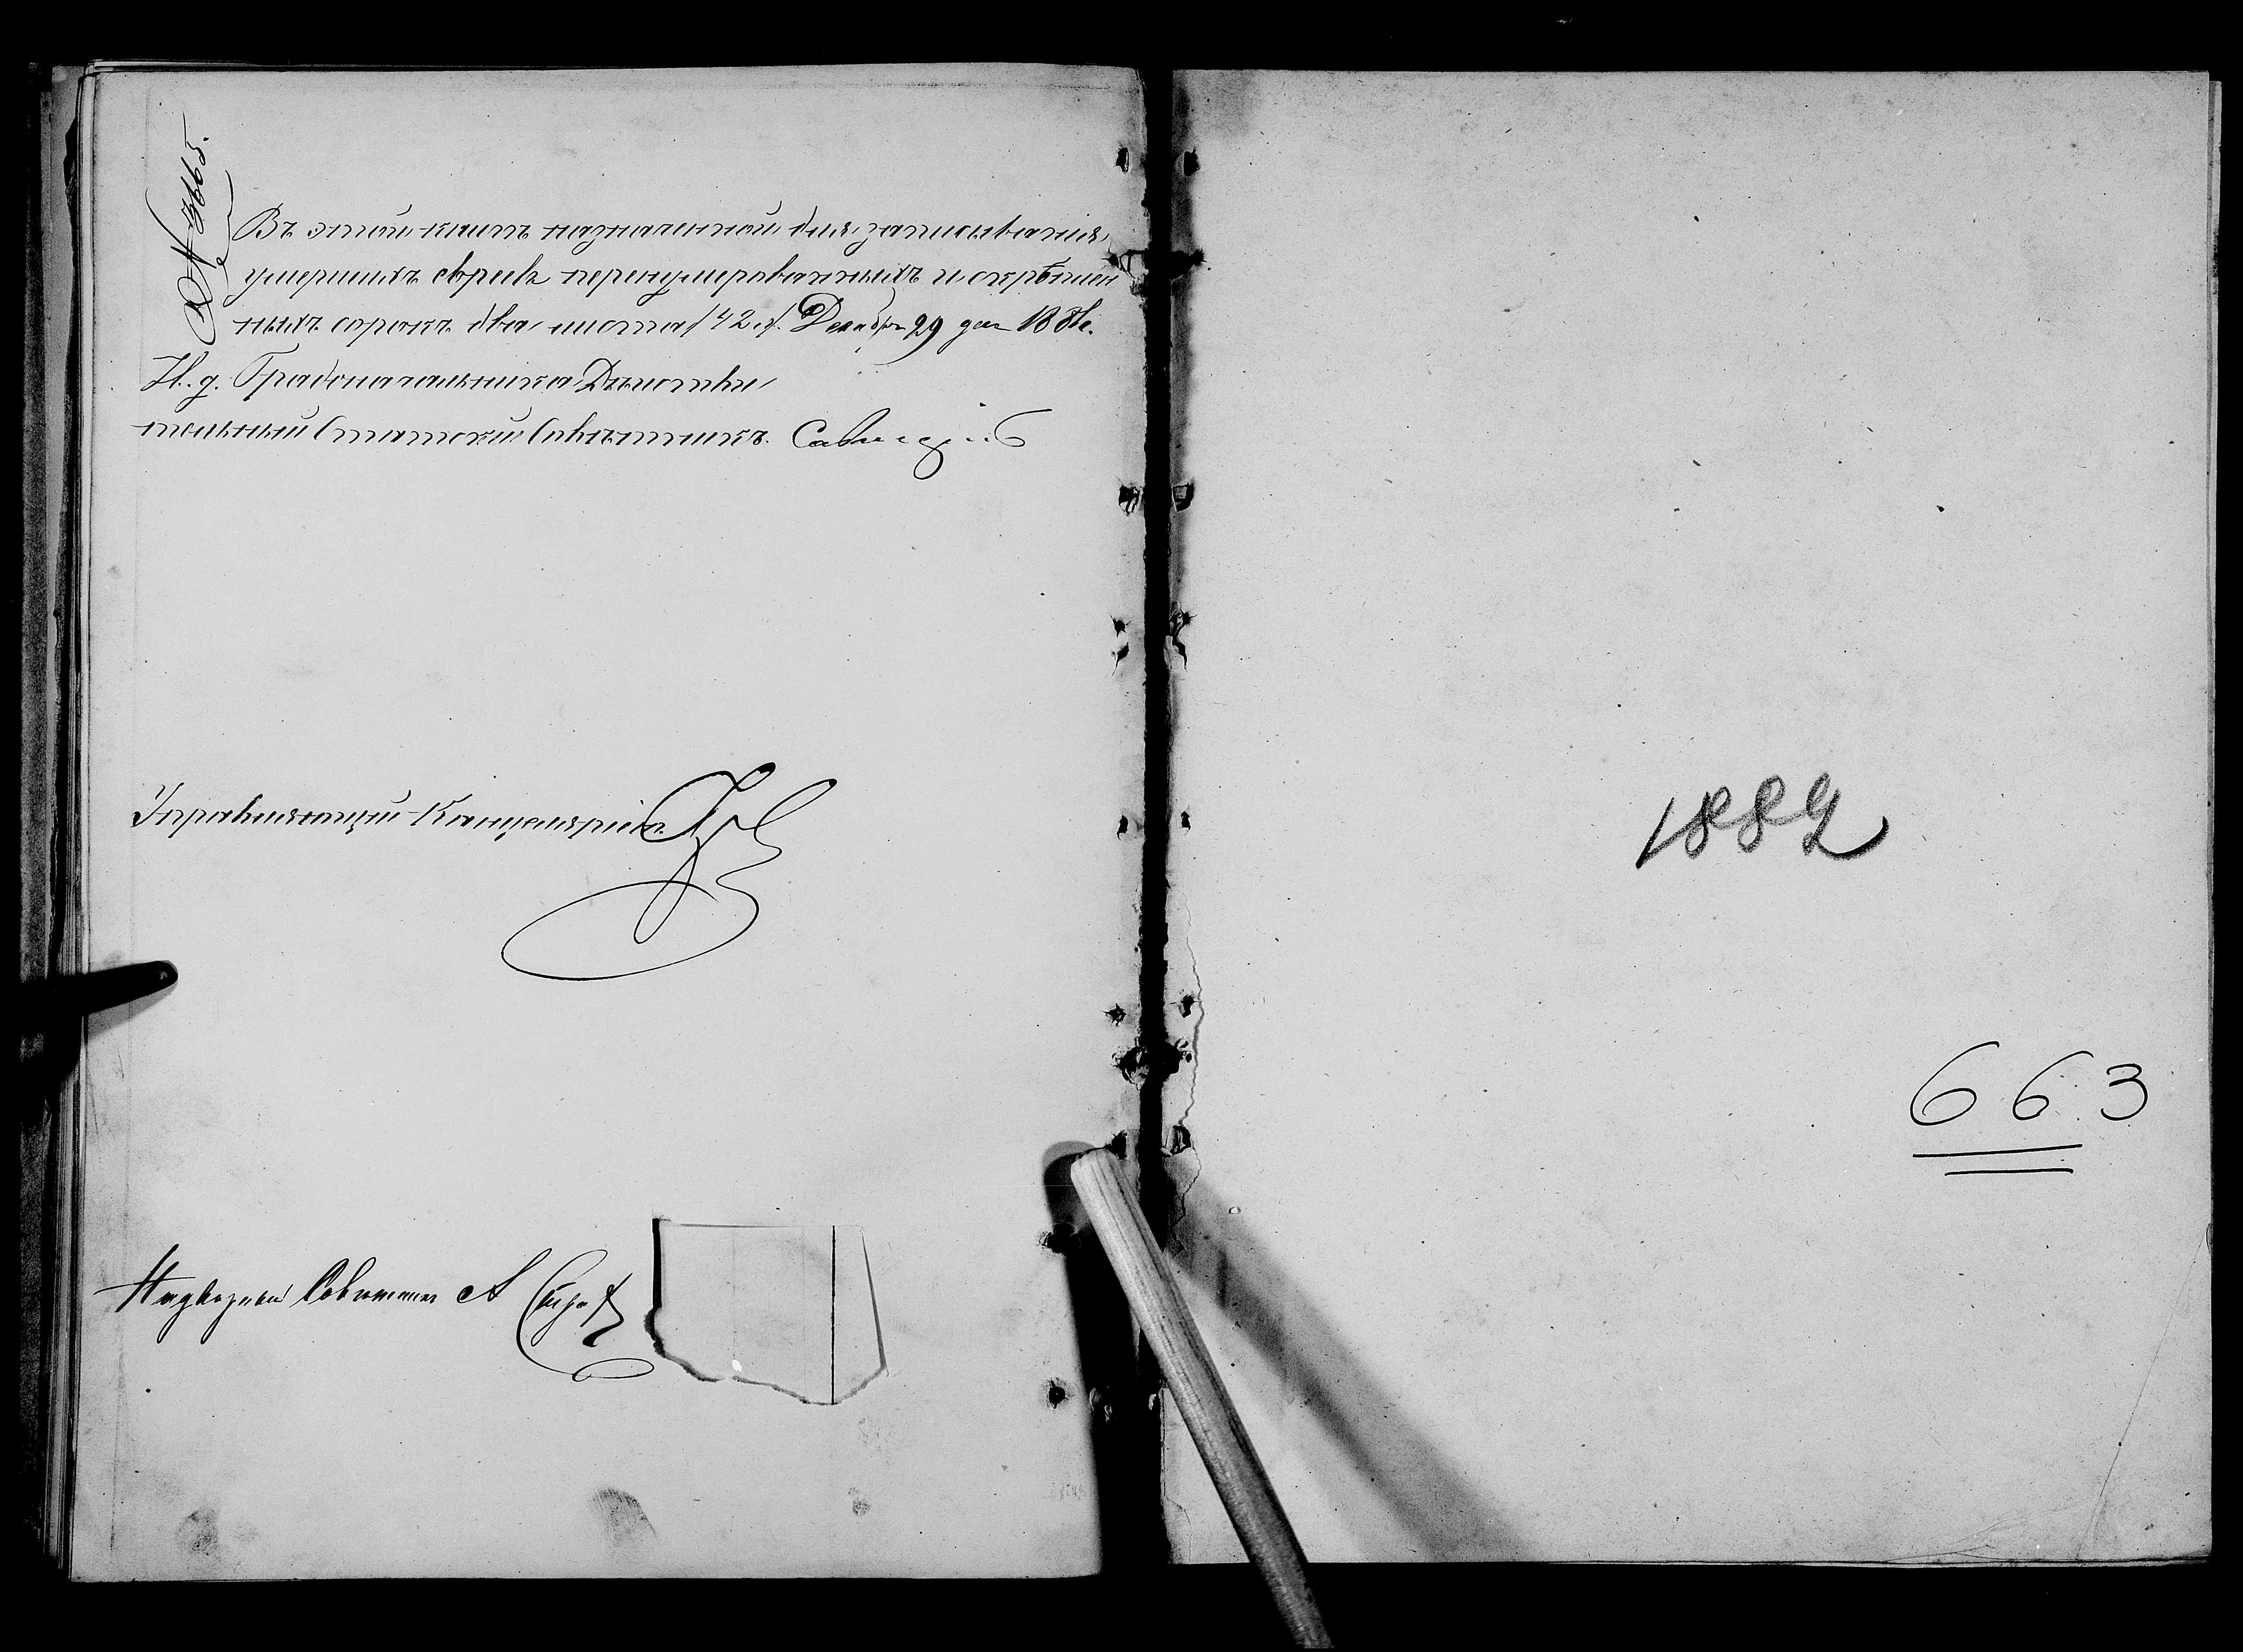 № 3665.
Въ этой книгѣ назначенной для записыванія
умершихъ евреевъ перенумерованныхъ и скрѣплен
ныхъ сорокъ два листа /42 л/. Декабря 29 дня 1881 г.
И. д. Градоначальника Дѣйстви
тельный Статскій Совѣтникъ
Управляющій Канцеляріею
Надворный Совѣтникъ А
1882
663